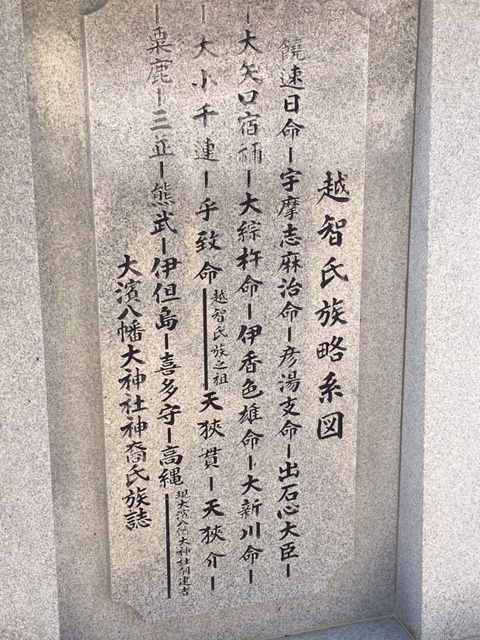 越智氏族略系図
饒速日命ー宇摩志麻治命ー彦湯支命ー出石心大臣ー
ー大矢口宿祢ー大綜杵命ー伊香色雄命ー大新川命ー
ー大小千連ー乎致命ー越智氏族之祖 天狭貫ー天狭介ー
ー粟鹿ー三並ー熊武ー伊但島ー喜多守ー高縄ー現大濱八幡大神社創建者
大濱八幡大神社神裔氏族誌